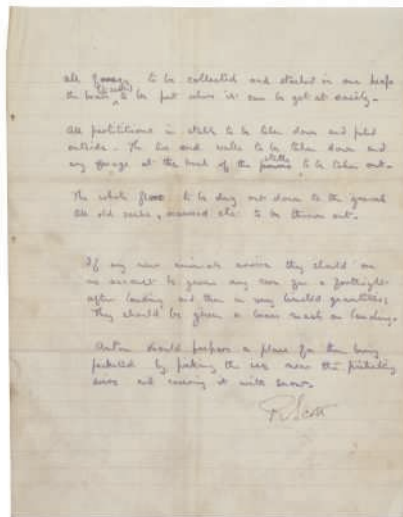 All forage to be collected and stacked in one heap
the bran to be put where it can be got at easily.
All partitions in stable to be taken down and piled
outside. The two end walls to be taken down and
any forage at the back of the stalls to be taken out.
The whole floor to be dug out down to the gravel
All old snow, manure etc to be thrown out.
If any new animals arrive they should on
no account be given any corn for a fortnight
after landing and then in very limited quantities.
They should be given a bran mash on landing.
Anton should prepare a place for them being
picketed by picking the ice near the picketing
and covering it with snow.
R Scott